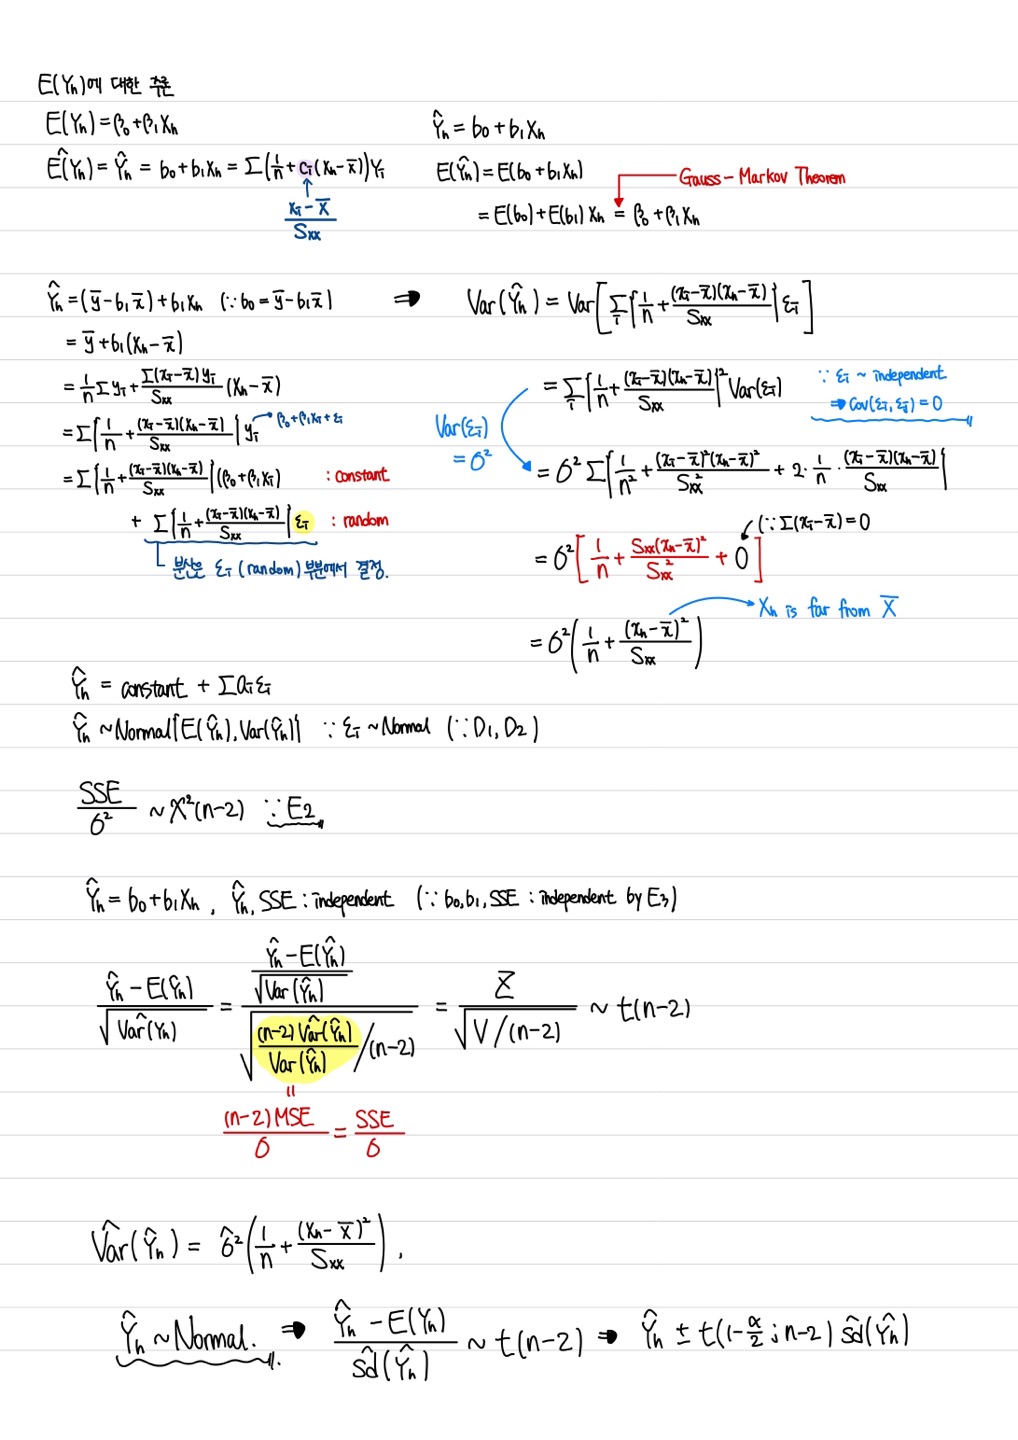 E(Yₕ)에 대한 추론
E(Yₕ) = β₀ + β₁Xₕ
Ê(Yₕ) = Ŷₕ = b₀ + b₁Xₕ = Σ(1/n + cᵢ(Xₕ - x̄))Yᵢ
(xᵢ - x̄)/Sxx
Ŷₕ = b₀ + b₁Xₕ
E(Ŷₕ) = E(b₀ + b₁Xₕ)
Gauss-Markov Theorem
= E(b₀) + E(b₁)Xₕ = β₀ + β₁Xₕ
Ŷₕ = (ȳ - b₁x̄) + b₁xₕ (∵ b₀ = ȳ - b₁x̄)
= ȳ + b₁(xₕ - x̄)
= 1/n Σyᵢ + Σ(xᵢ - x̄)yᵢ/Sxx (xₕ - x̄)
= Σ{1/n + (xᵢ - x̄)(xₕ - x̄)/Sxx} yᵢ → β₀ + β₁xᵢ + εᵢ
= Σ{1/n + (xᵢ - x̄)(xₕ - x̄)/Sxx}(β₀ + β₁xᵢ) : constant
+ Σ{1/n + (xᵢ - x̄)(xₕ - x̄)/Sxx} εᵢ : random
분산은 εᵢ (random) 부분에서 결정.
⇒ Var(Ŷₕ) = Var[Σᵢ{1/n + (xᵢ - x̄)(xₕ - x̄)/Sxx} εᵢ]
= Σᵢ{1/n + (xᵢ - x̄)(xₕ - x̄)/Sxx}² Var(εᵢ)
∵ εᵢ ~ independent
⇒ Cov(εᵢ, εⱼ) = 0
Var(εᵢ)
= σ²
= σ² Σ{1/n² + (xᵢ - x̄)²(xₕ - x̄)²/Sxx² + 2·1/n·(xᵢ - x̄)(xₕ - x̄)/Sxx}
(∵ Σ(xᵢ - x̄) = 0
= σ²[1/n + Sxx(xₕ - x̄)²/Sxx² + 0]
Xₕ is far from X̄
= σ²(1/n + (xₕ - x̄)²/Sxx)
Ŷₕ = constant + Σaᵢεᵢ
Ŷₕ ~ Normal{E(Ŷₕ), Var(Ŷₕ)} ∵ εᵢ ~ Normal (∵ D1, D2)
SSE/σ² ~ χ²(n-2) ∵ E2
Ŷₕ = b₀ + b₁Xₕ, Ŷₕ, SSE : independent (∵ b₀, b₁, SSE : independent by E3)
(Ŷₕ - E(Ŷₕ))/√Var̂(Yₕ) = ((Ŷₕ - E(Ŷₕ))/√Var(Ŷₕ))/√((n-2)Var̂(Ŷₕ)/Var(Ŷₕ)/(n-2)) = Z/√(V/(n-2)) ~ t(n-2)
=
(n-2)MSE/σ = SSE/σ
Var̂(Ŷₕ) = σ̂²(1/n + (Xₕ - X̄)²/Sxx),
Ŷₕ ~ Normal. ⇒ (Ŷₕ - E(Yₕ))/sd̂(Ŷₕ) ~ t(n-2) ⇒ Ŷₕ ± t(1-α/2 ; n-2) sd̂(Ŷₕ)